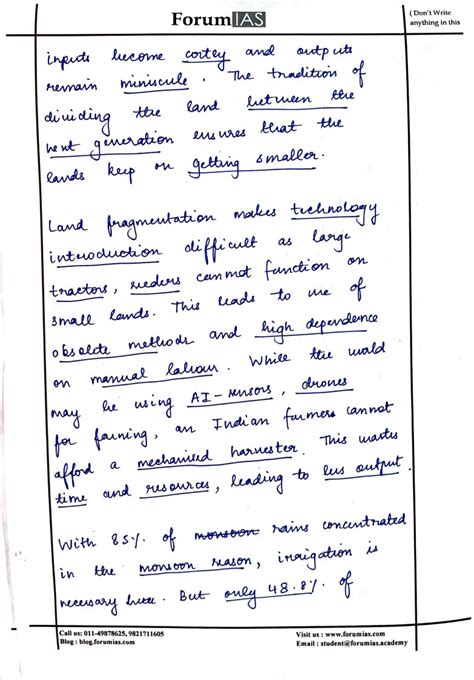 Forum IAS
(Don't Write
anything in this
inputs become costly and outputs
remain miniscule. The tradition of
dividing the land between the
next generation ensures that the
lands keep on getting smaller.
Land fragmentation makes technology
introduction difficult as large
tractors, seeders cannot function on
small lands. This leads to use of
obsolete methods and high dependence
on manual labour. While the world
may be using AI-sensors, drones
for farming, an Indian farmers cannot
afford a mechanised harvester. This wastes
time and resources, leading to less output.
With 85% of monsoon rains concentrated
in the monsoon season, irrigation is
necessary here. But only 48.8% of
Call us: 011-49878625, 9821711605
Blog : blog.forumias.com
Visit us : www.forumias.com
Email : student@forumias.academy